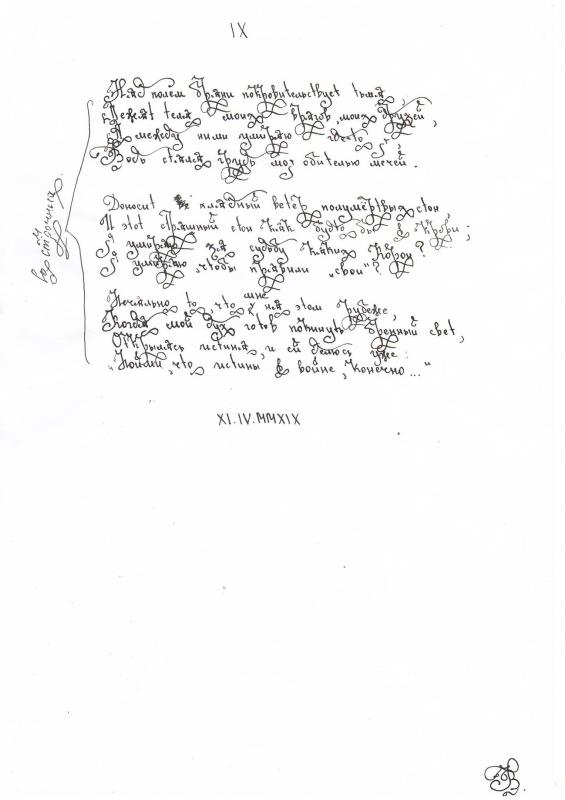 IX
Над полем брани покровительствует тьма,
Лежат тела моих врагов, моих друзей,
А между ними умираю где-то я,
Ведь стала грудь моя обителью мечей.
Доносит хладный ветер полумёртвых стон,
И этот страшный стон как будто бы в крови;
Я умираю за судьбу каких корон?
Я умираю, чтобы правили "свои"?
Печально то, что мне на этом рубеже,
Когда мой дух готов покинуть бренный свет,
Открылась истина, и ей делюсь уже:
"Пойми, что истины в войне, конечно..."
XI.IV.MMXIX